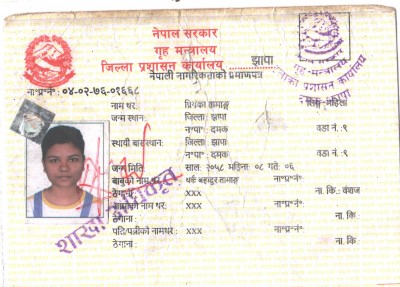 नेपाल सरकार
गृह मन्त्रालय
जिल्ला प्रशासन कार्यालय, झापा
नेपाली नागरिकताको प्रमाणपत्र
ना॰प्र॰नं॰ : ०४-०२-७६-०९६६८
नाम थर: प्रियंका तामाङ्ग लिङ्ग: महिला
जन्म स्थान: जिल्ला: झापा
न॰पा॰ : दमक वडा नं. :९
स्थायी बासस्थान: जिल्ला: झापा
न॰पा॰ : दमक वडा नं. :९
जन्म मिति साल: २०५८ महिना: ०८ गते: ०६
बाबुको नाम थर: बहादुर तामाङ्ग ना॰प्र॰नं॰
ठेगाना: xxx ना. कि.: वंशज
आमाको नाम थर: xxx ना॰प्र॰नं॰
ठेगाना : xxx ना. कि
पति/पत्नीको नामथर: xxx ना॰प्र॰नं॰
ठेगाना: ना. कि
गृह-मन्त्रालय
जिल्ला प्रशासन कार्यालय
शाखा